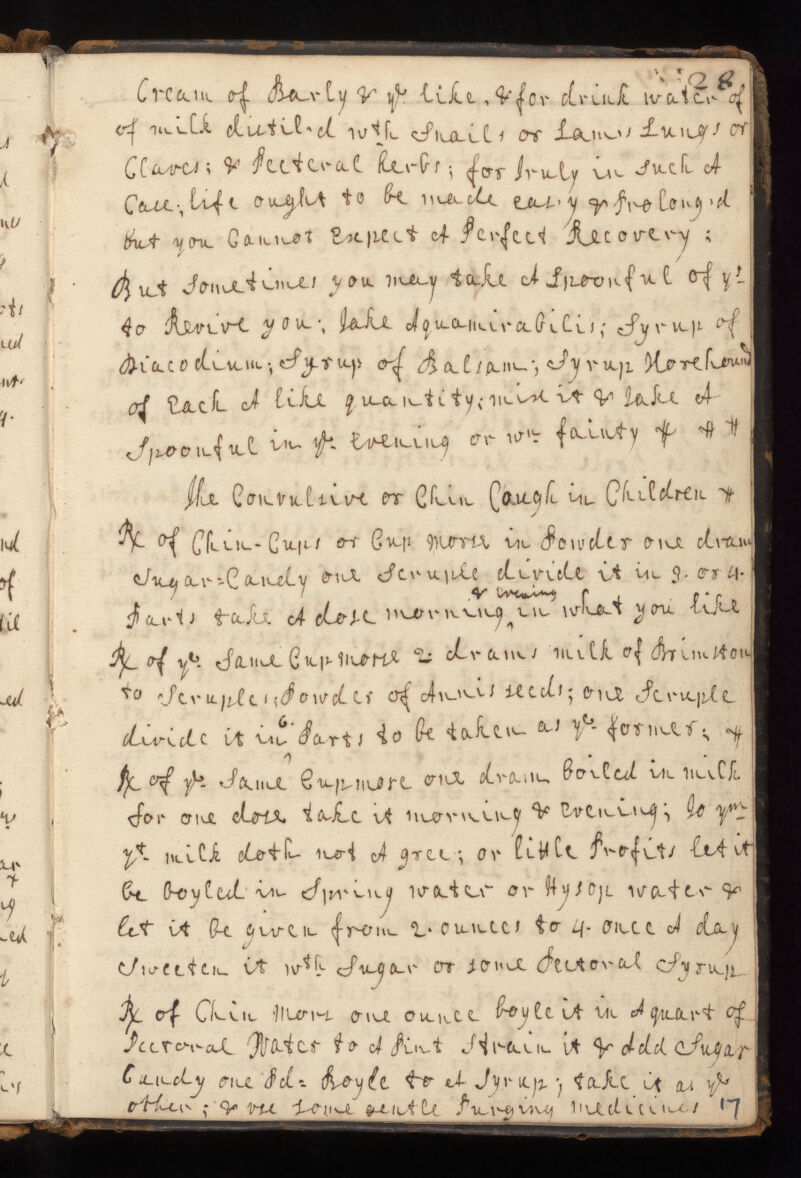 28
Cream of Barly & ye like, & for drink water of
of milk distil'd wth Snails or Lams Lungs or
Claves; & Pecteral herbs; for truly in such A
Case, life ought to be made easy & prolong'd
but you Cannot Expect A Perfect Recovery;
But Sometimes you may take A Spoonful of ys
to Revive you; take Aquamirabilis; Syrup of
Diacodium; Syrup of Balsam; Syrup Horehound
of Each A like quantity; mix it & take A
Spoonful in ye Evening or wn fainty
The Convulsive or Chin Cough in Children
℞ of Chin-Cups or Cup morse in Powder one dram
Sugar=Candy one Scruple divide it in 3. or 4.
Parts take A dose morning & Evening in what you like
℞ of ye Same Cupmorse 2 drams milk of Brimston
to Scruples; Powder of Annis seeds; one Scruple
divide it in 6 Parts to be taken as ye former;
℞ of ye Same Cupmore one dram boiled in milk
for one dose take it morning & Evening; to ym
yt milk doth not A gree; or little Profits let it
be boyled in Spring water or Hysop water &
let it be given from 2. ounces to 4. once A day
Sweeten it wth Sugar or some Pectoral Syrup
℞ of Chin Mors one ounce boyle it in A quart of
Pectoral Water to A Pint Strain it & Add Sugar
Candy one Pd= Boyle to A Syrup; take it as ye
other; & use some gentle Purging medicines 17